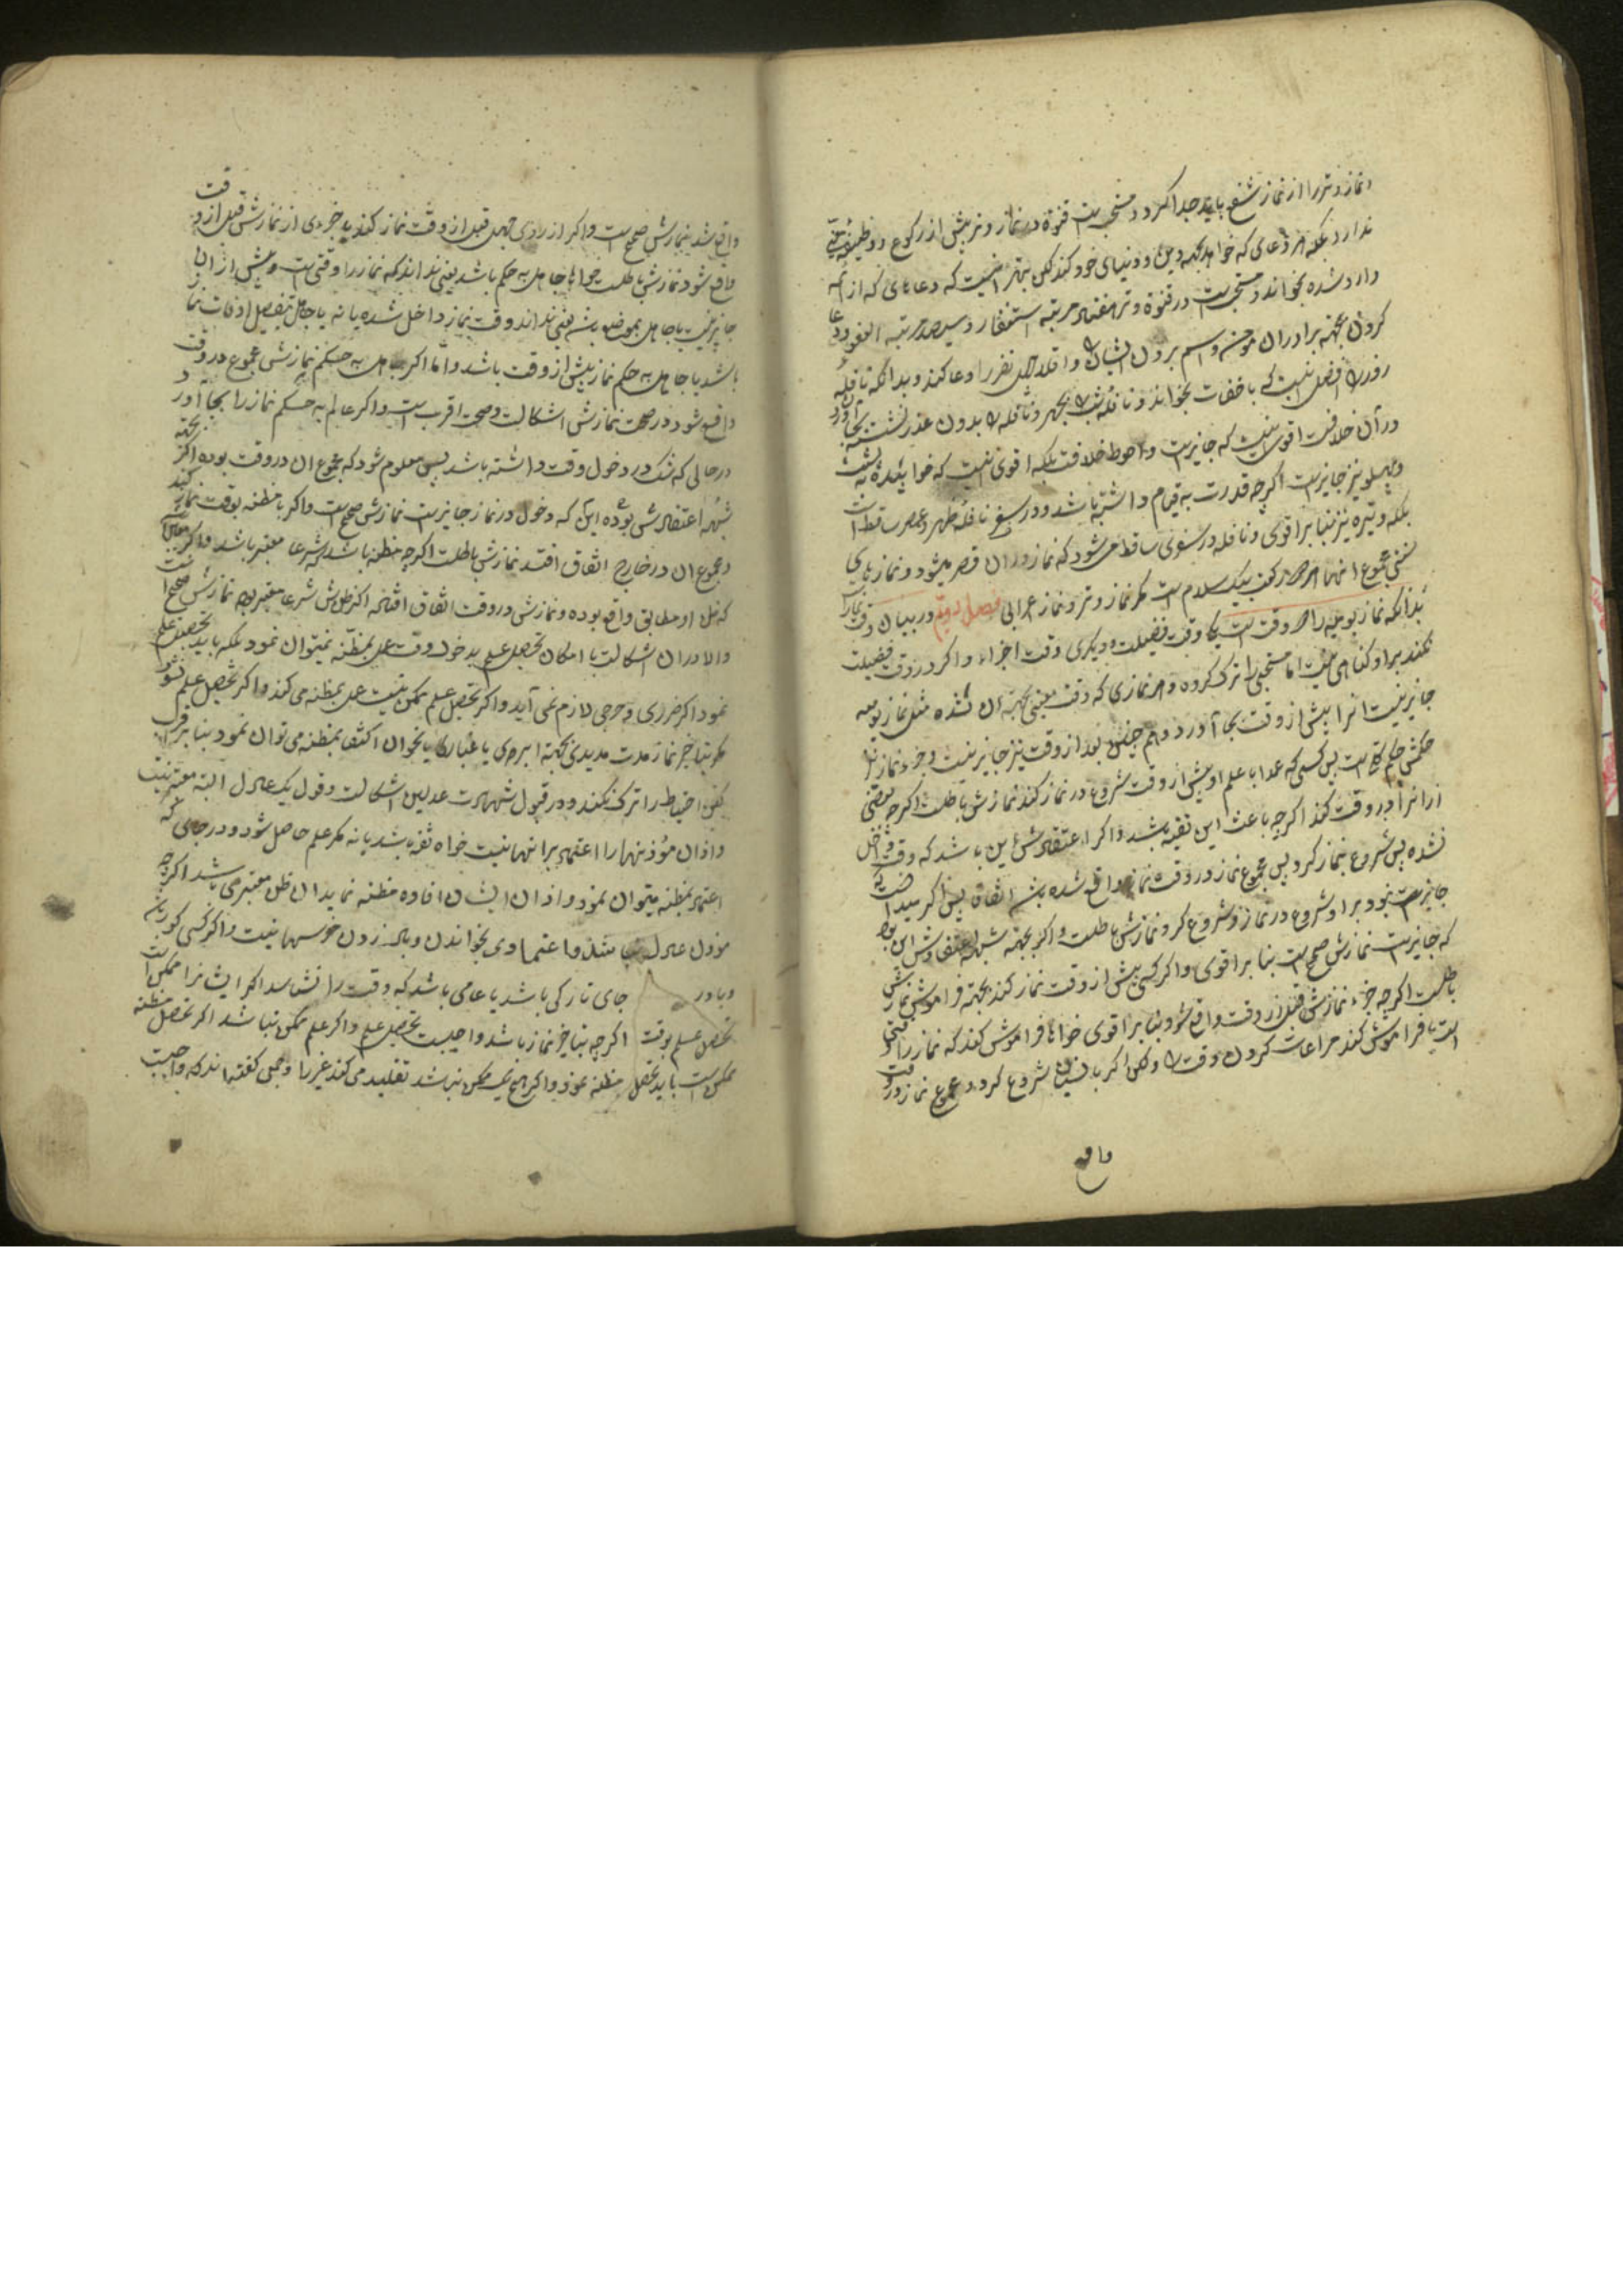 نماز وتر را از نماز شفع باید جدا کرد و مستحب است قنوة در نماز وتر پیش از رکوع و وظیفه معینی
ندارد بلکه هر دعائی که خواهد بجهة دین و دنیای خود کند لکن بهتر انست که دعاهای که از ائمه
وارد شده بخواند و مستحب است در قنوة وتر هفتاد مرتبه استغفار و سیصد مرتبه العفو و دعا
کردن بجهة برادران مؤمن و اسم بردن ایشان و اقلا چهل نفر را دعا کند و بدانکه نافله
روز را افضل انست که باخفات بخواند و نافله شب را بجهر و نافله را بدون عذر نشسته بجا آورد
در آن خلافست اقوی انست که جایز است و احوط خلافست بلکه اقوی انست که خوابیده به پشت
و پهلو نیز جایز است اگرچه قدرت به قیام داشته باشد و در سفر نافله ظهر و عصر ساقط است
بلکه وتیره نیز بنا بر اقوی و نافله در سفری ساقط میشود که نماز در ان قصر میشود و نمازهای
سنتی مجموع انها هر دو رکعت بیک سلام است مگر نماز وتر و نماز اعرابی فصل دویم در بیان وقت نماز
بدانکه نماز یومیه را دو وقت است یکی وقت فضیلت و دیگری وقت اجزاء و اگر در وقت فضیلت
نکند بر او گناهی نیست اما مستحبی را ترک کرده و هر نمازی که وقت معینی بجهة ان شده مثل نماز یومیه
جایز نیست انرا پیش از وقت بجا آورد و هم چنین بعد از وقت نیز جایز نیست و جزء نماز نیز
حکمش حکم کل است پس کسی که عمدا با علم او پیش از وقت شروع در نماز کند نمازش باطلست اگرچه بعضی
از انرا در وقت کند اگرچه باعث این تقیه باشد و اگر اعتقادش این باشد که وقت داخل
نشده پس شروع بنماز کرد پس مجموع نماز در وقت نماز واقع شده باشد اتفاقا پس اگر میدانست که
جایز نبود بر او شروع در نماز و شروع کرد نمازش باطلست و اگر بجهة شبهه اعتقادش این بود
که جایز است نمازش صحیح است بنا بر اقوی و اگر کسی پیش از وقت نماز کند بجهة فراموشی نمازش
باطلست اگرچه جزء نمازش قبل از وقت واقع شود بنا بر اقوی خواه فراموش کند که نماز را وقتی
است یا فراموش کند مراعات کردن وقت را ولکن اگر با نسیان شروع کرد و مجموع نماز در وقت
واقع
واقع شد نمازش صحیح است و اگر از روی جهل قبل از وقت نماز کند یا جزءی از نمازش قبل از وقت
واقع شود نمازش باطلست خواه جاهل به حکم باشد یعنی نداند که نماز را وقتی است و پیش از ان
جایز نیست یا جاهل بموضوع باشد یعنی نداند وقت نماز داخل شده یا نه یا جاهل بتفصیل اوقات نماز
باشد یا جاهل به حکم نماز پیش از وقت باشد و اما اگر جاهل به حکم نمازش مجموع در وقت
واقع شود در صحت نمازش اشکالست و صحت اقرب است و اگر عالم به حکم نماز را بجا آورد
در حالی که شک در دخول وقت داشته باشد پس معلوم شود که مجموع ان در وقت بوده اگر بجهة
شبهه اعتقادش بوده این که دخول در نماز جایز است نمازش صحیح است و اگر با مظنه بوقت نماز کند
و مجموع ان در خارج اتفاق افتد نمازش باطلست اگرچه مظنه باشد که شرعا معتبر باشد و اگر
که ظن او مطابق واقع بوده و نمازش در وقت اتفاق افتاده اگر ظنش شرعا معتبر بوده نمازش صحیح است
والا در ان اشکالست با امکان تحصیل علم بدخول وقت عمل بمظنه نمیتوان نمود بلکه باید تحصیل علم
نمود اگر ضرری و حرجی لازم نمی آید و اگر تحصیل علم ممکن نیست عمل بمظنه می کند و اگر تحصیل علم نشود
مگر بتاخیر نماز مدت مدیدی بجهة ابری یا غباری یا نحو ان اکتفا بمظنه می توان نمود بنا بر اقرب
لکن احتیاط را ترک نکند و در قبول شهادت عدلین اشکالست و قول یک عادل البته معتبر نیست
و اذان مؤذنها را اعتماد بر انها نیست خواه ثقه باشد یا نه مگر علم حاصل شود و در جای که
اعتماد بمظنه میتوان نمود و اذان ایشان افاده مظنه نماید ان ظن معتبر می باشد اگرچه
مؤذن عادل نباشد و اعتمادی بخواندن و بال زدن خروسها نیست و اگر کسی کور باشد
و یا در جای تاریکی باشد یا عامی باشد که وقت را نشناسد اگر ایشانرا ممکن است
تحصیل علم بوقت اگرچه بتاخیر نماز باشد واجبست تحصیل علم و اگر علم ممکن نباشد اگر تحصیل مظنه
ممکن است باید تحصیل مظنه نمود و اگر هیچ یک ممکن نباشد تقلید می کند غیر را و جمعی گفته اند که واجبست